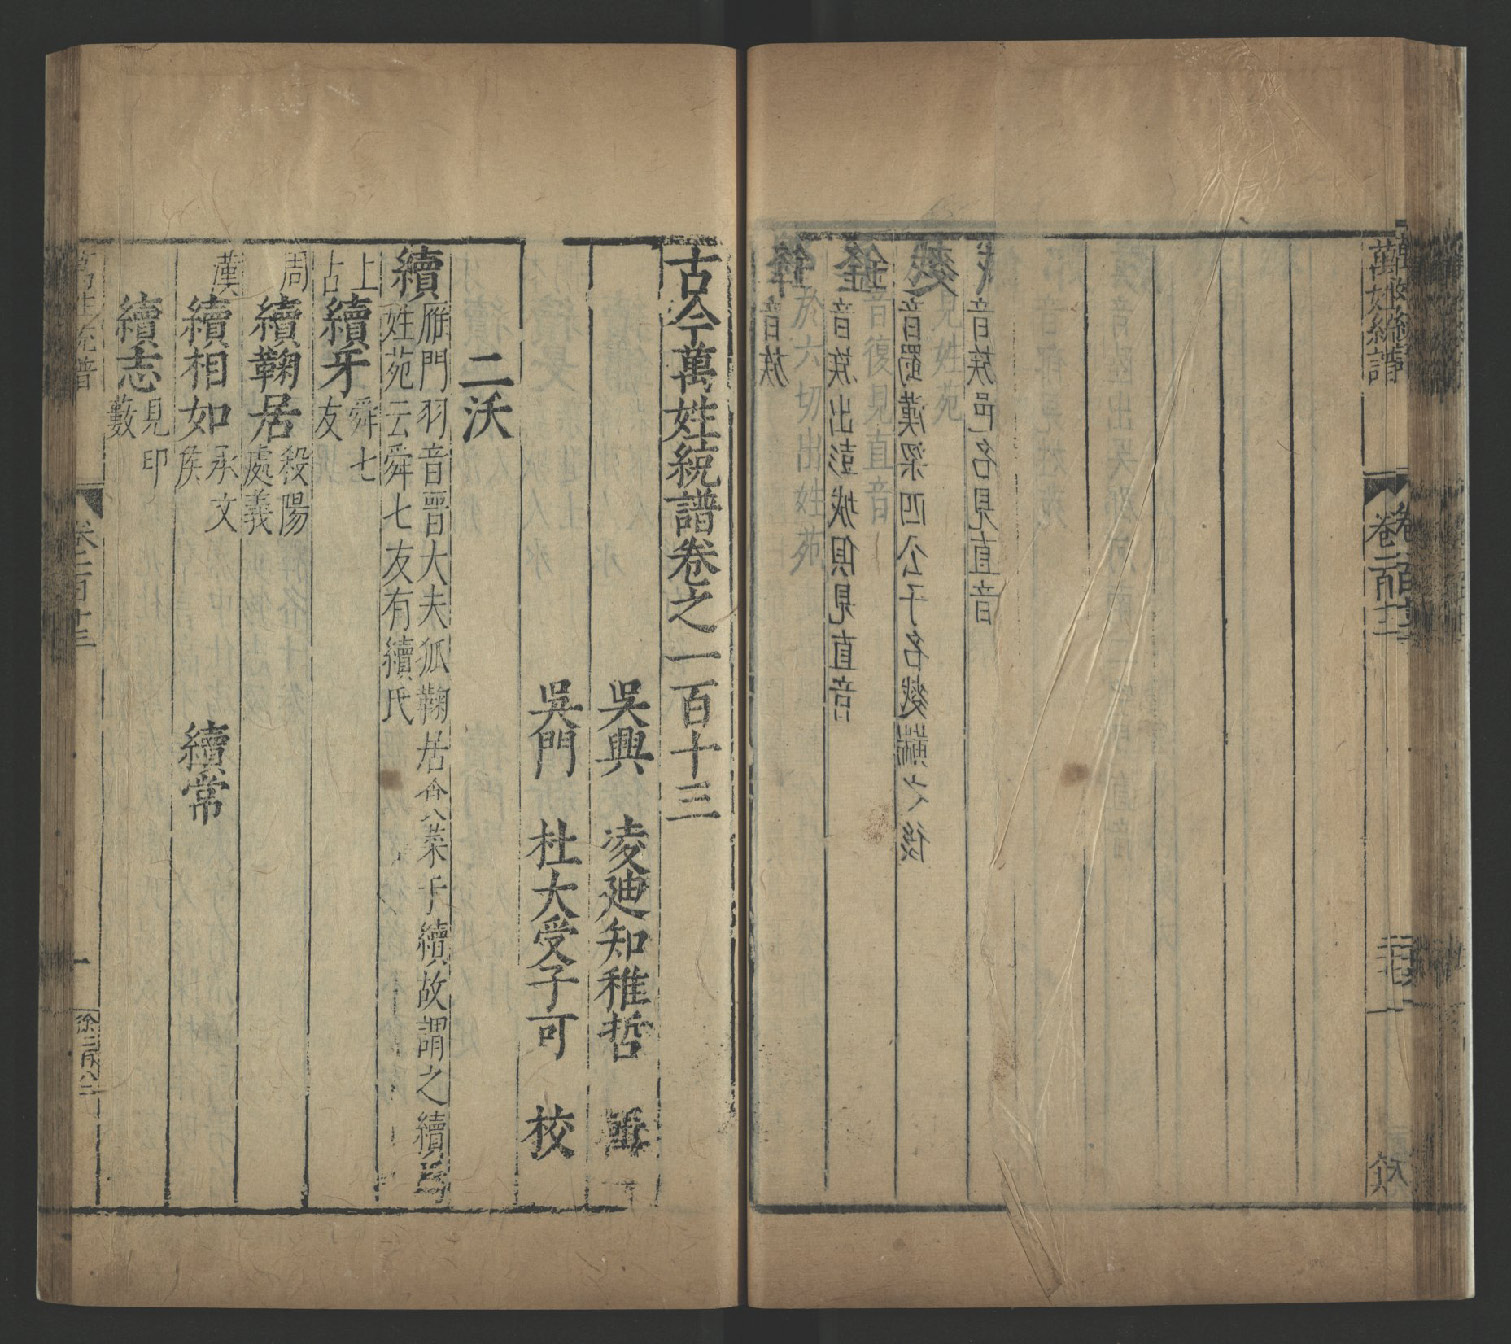 萬姓統譜
卷一百十二
音族邑名見直音
見姓苑
音蜀漢梁四公子名
之後
音復見直音
音族出彭城俱見直音
於六切出姓苑
音族
古今萬姓統譜卷之一百十三
吳興 凌廸知稚哲 輯
吳門 杜大受子可 校
二沃
續
雁門羽音晋大夫狐鞫居食采于續故謂之續
姓苑云舜七友有續氏
上古
續牙
舜七友
周
續鞫居
殺陽處義
漢
續相如
承父侯
續常
續志
見印藪
卷一百十三
一